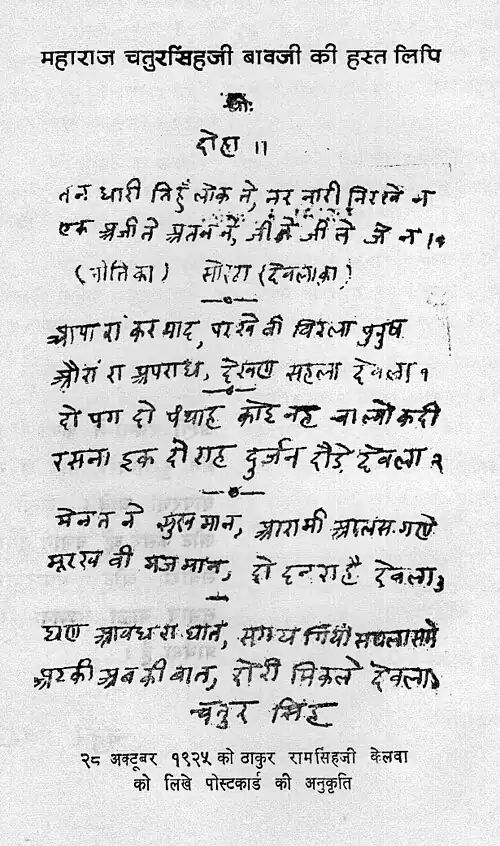 महाराज चतुरसिंहजी बावजी की हस्त लिपि
श्री:
दोहा ।।
तन धारी तिहुँ लोक ने, नर नारी निरखे न
एक अजीते अतनने, जीते जीते जे न ।१
(नीति का) सोरठा (देवला का)
आपारां कर याद, परखे वी विरला पुरुष
औरां रा अपराध, देखण सहला देवला १
दो पग दो पंथाह कोइ नह चाल्यो कदी
रसना इक दो राह दुर्जन दौड़े देवला २
मेनत ने सुख मान, आरामी आलस गणे
मूरख वी मजमान, दो दनरा है देवला ३
घण आवध रा घात, समय
अटकी अबकी वात, दोरी निकले देवला
चतुर सिंह
२८ अक्टूबर १९२५ को ठाकुर रामसिंहजी केलवा
को लिखे पोस्टकार्ड की अनुकृति